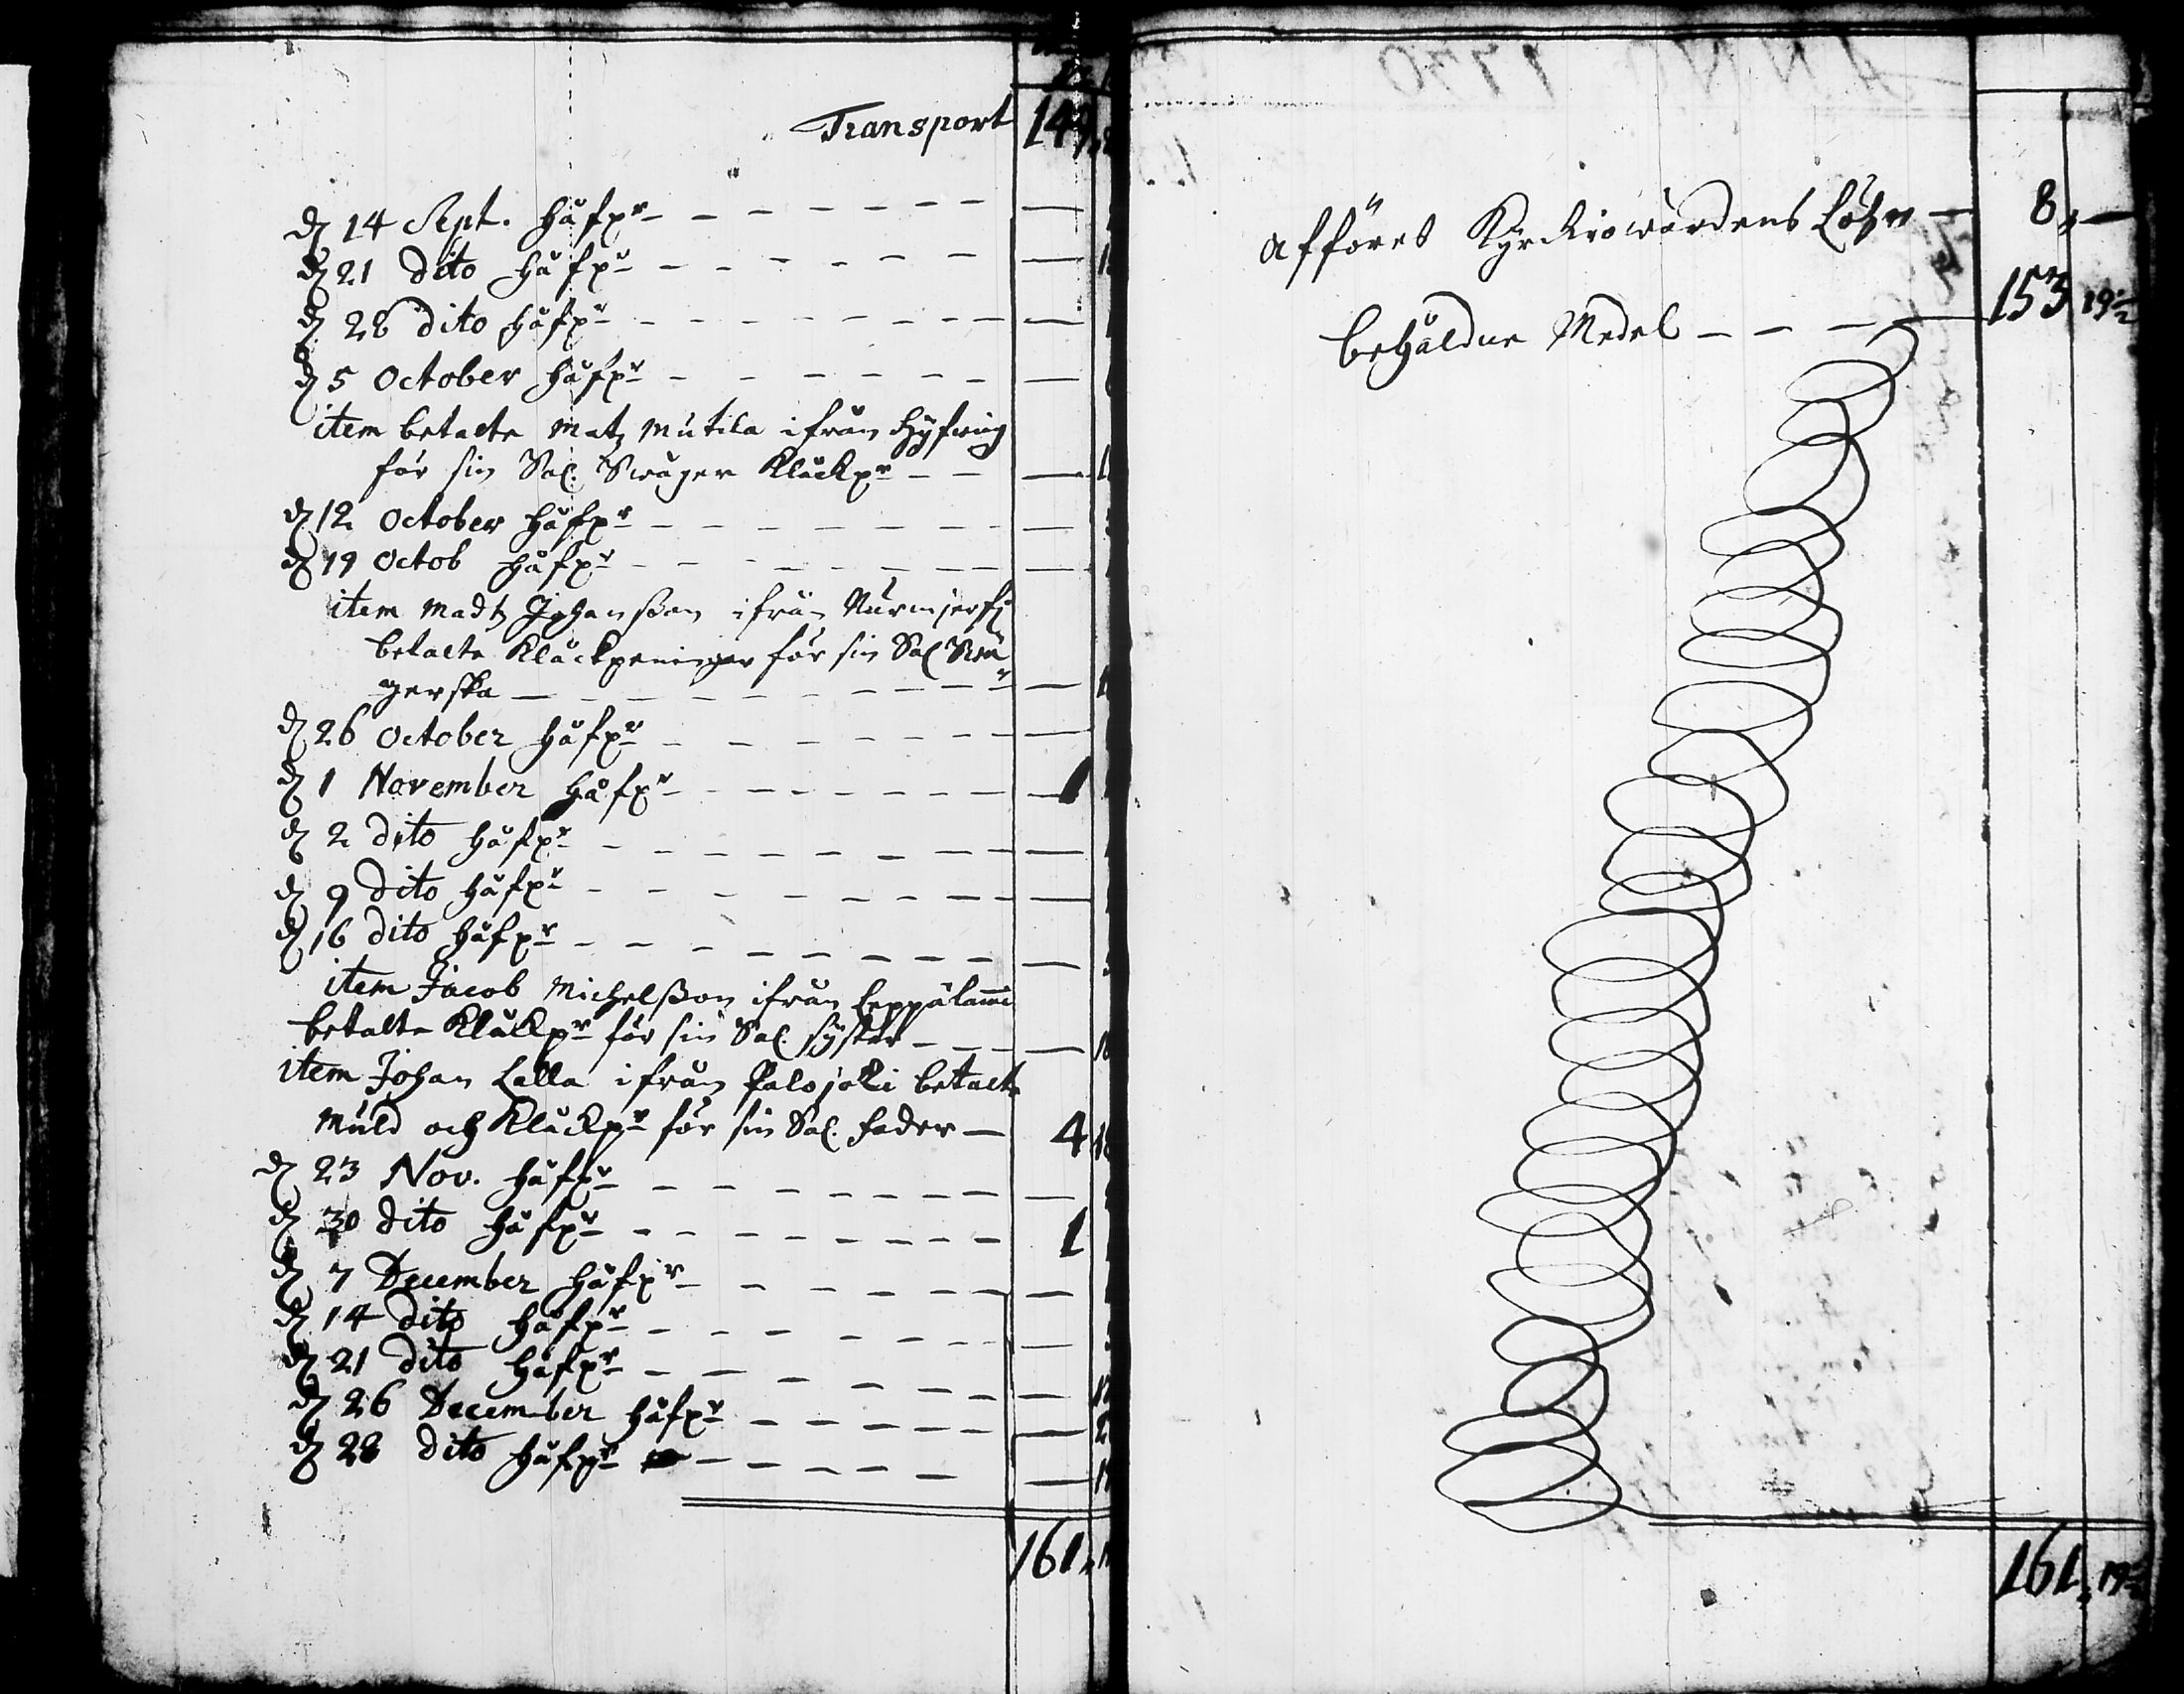 Transport 149
d 14 Sept. håfpr — —
d 21 dito håfpr — —
d 28 dito håfpr — —
d 5 October håfpr — —
item betalte Matz Mutila ifrån Hyfving
för sin Sal. Swåger Klåckpr — —
d 12 October håfpr — —
d 19 Octob håfpr — —
item Madtz Johansson ifrån Nurmjerfj
betalte Klåckpeningar för sin Sal Swå
gerska — —
d 26 October håfpr — —
d 1 November håfpr — — 1
d 2 dito håfpr — —
d 9 dito håfpr — —
d 16 dito håfpr — —
item Jacob Michelsson ifrån Leppälammi
betalte Klåckpr för sin Sal. syster — —
item Johan Lalla ifrån Palojoki betalte
Muld och Klåckpr för sin Sal. fader — 4
d 23 Nov. håfpr — —
d 30 dito håfpr — — 1
d 7 December håfpr — —
d 14 dito håfpr — —
d 21 dito håfpr — —
d 26 December håfpr — —
d 28 dito håfpr — —
161
afföres Kyrckiowärdens Löhn — 8 —
behåldne Medel — — — 153 19 ½
161 19 ½